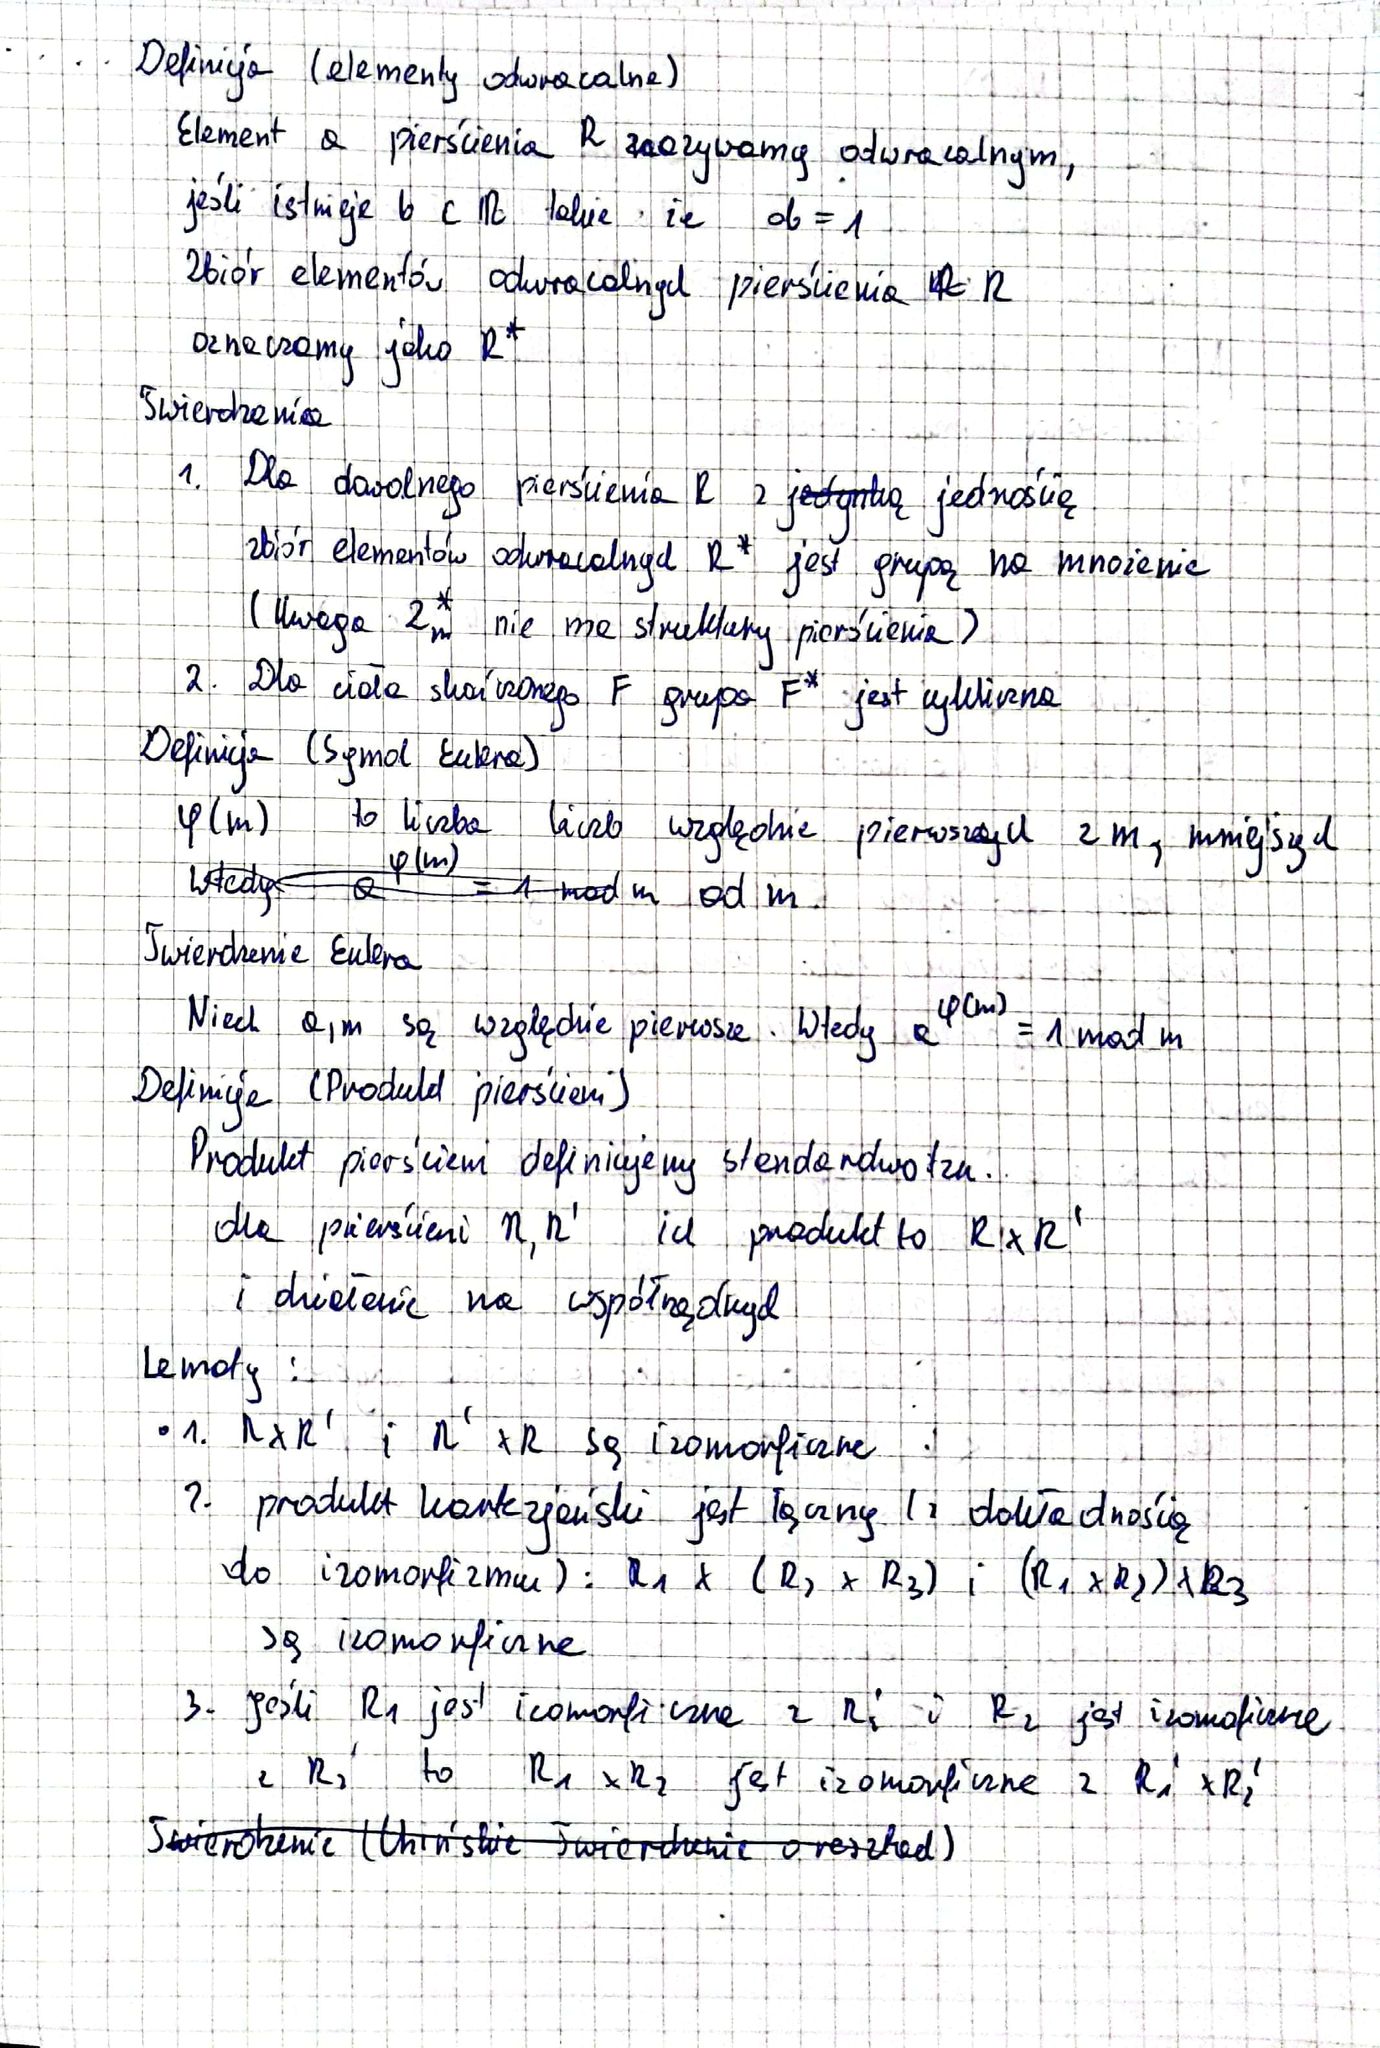 Definicja (elementy odwracalne)
Element a pierścienia R nazywamy odwracalnym,
jeśli istnieje b ∈ R takie że ab = 1
Zbiór elementów odwracalnych pierścienia R
oznaczamy jako R*
Twierdzenia
1. Dla dowolnego pierścienia R z jedynką jednością
zbiór elementów odwracalnych R* jest grupą na mnożenie
(Uwaga Z*m nie ma struktury pierścienia)
2. Dla ciała skończonego F grupa F* jest cykliczna
Definicja (Symbol Eulera)
φ(m) to liczba liczb względnie pierwszych z m, mniejszych
Wtedy a^φ(m) = 1 mod m od m.
Twierdzenie Eulera
Niech a, m są względnie pierwsze. Wtedy a^φ(m) = 1 mod m
Definicja (Produkt pierścieni)
Produkt pierścieni definiujemy standardowo tzn.
dla pierścieni R, R' ich produkt to R x R'
i działanie na współrzędnych
Lematy :
1. R x R' i R' x R są izomorficzne
2. produkt kartezjański jest łączny (z dokładnością
do izomorfizmu): R1 x (R2 x R3) i (R1 x R2) x R3
są izomorficzne
3. Jeśli R1 jest izomorficzne z R1' i R2 jest izomoficzne
z R2' to R1 x R2 jest izomorficzne z R1' x R2'
Twierdzenie (Chińskie Twierdzenie o resztach)